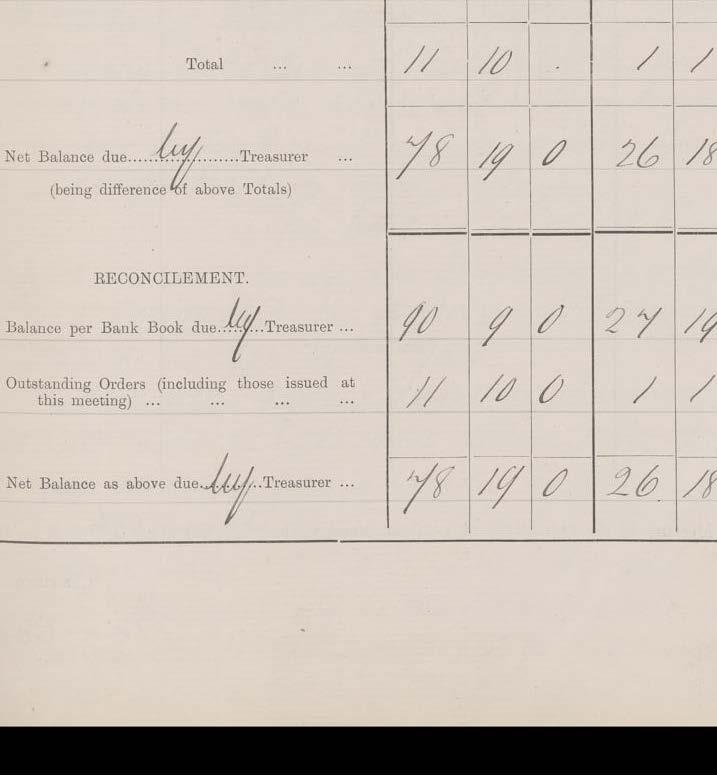 Total ... ... 11 10 . 1 1
Net Balance due......by.........Treasurer ... 78 19 0 26 18
(being difference of above Totals)
RECONCILEMENT.
Balance per Bank Book due..by..Treasurer ... 90 9 0 27 19
Outstanding Orders (including those issued at
this meeting) ... ... ... ... 11 10 0 1 1
Net Balance as above due..by..Treasurer ... 78 19 0 26 18